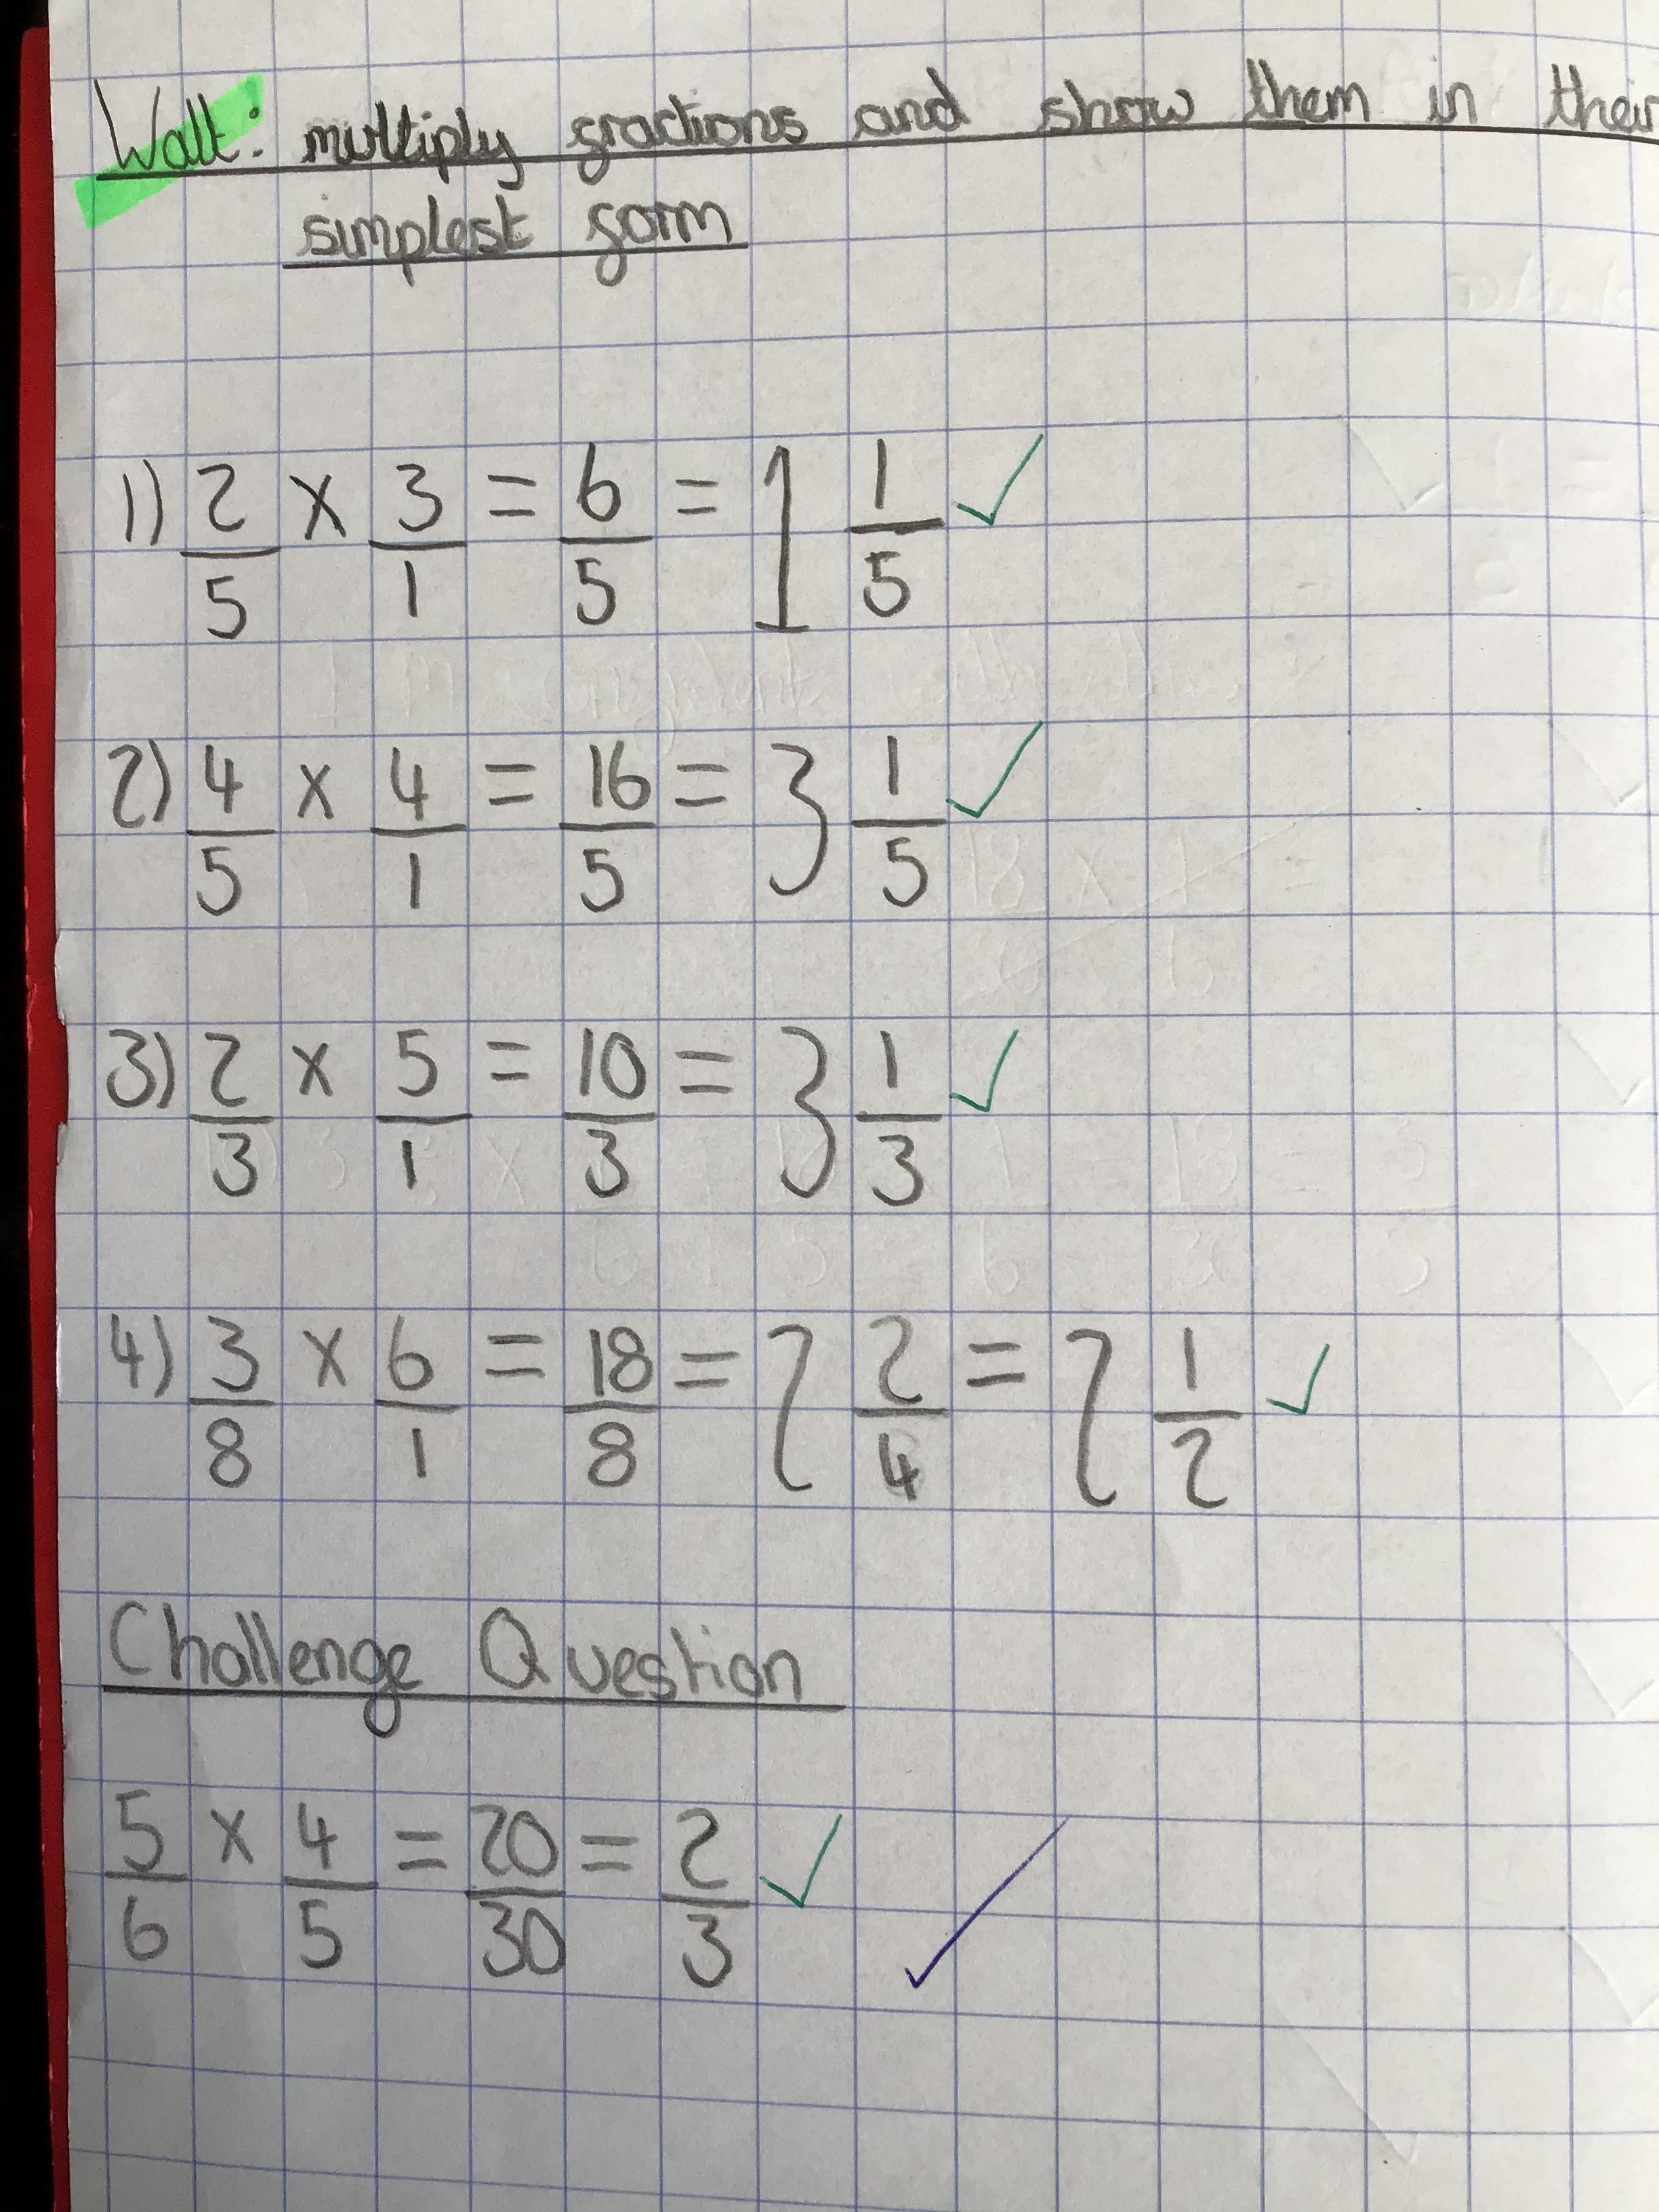 Walt: multiply fractions and show them in their
simplest form
1) 2/5 x 3/1 = 6/5 = 1 1/5 ✓
2) 4/5 x 4/1 = 16/5 = 3 1/5 ✓
3) 2/3 x 5/1 = 10/3 = 3 1/3 ✓
4) 3/8 x 6/1 = 18/8 = 2 2/4 = 2 1/2 ✓
Challenge Question
5/6 x 4/5 = 20/30 = 2/3 ✓ ✓